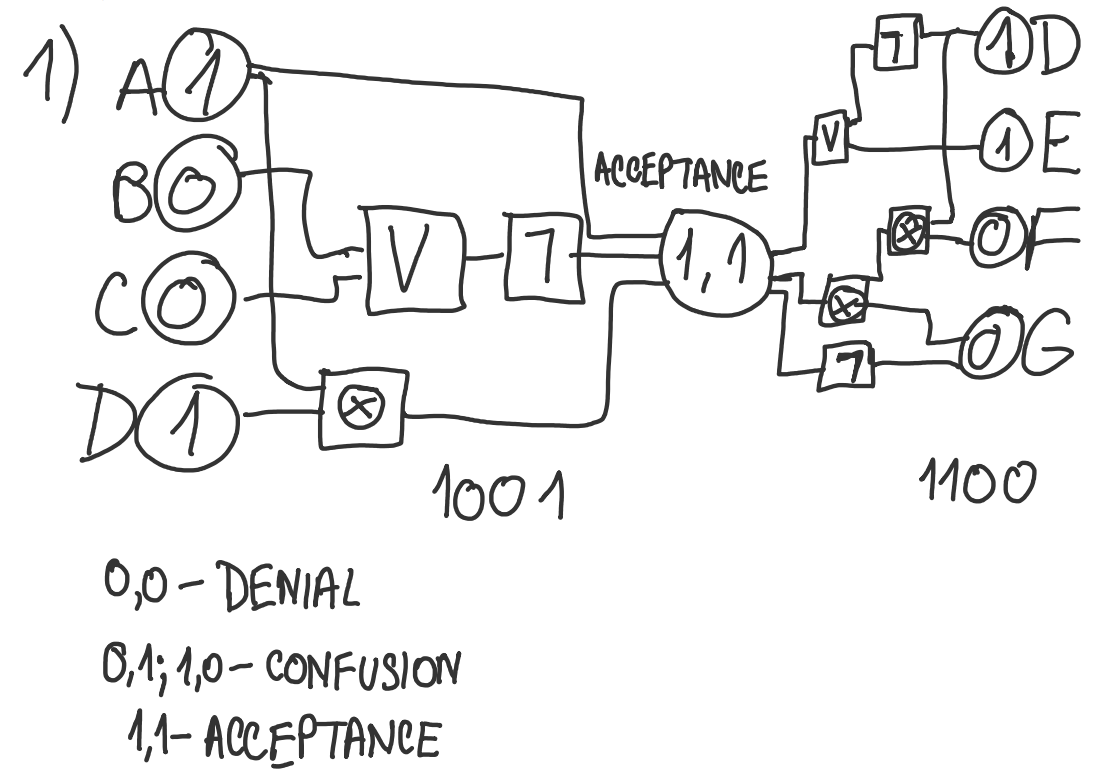 1)
A 1
B 0
C 0
D 1
V
7
⊗
ACCEPTANCE
1,1
V
7
⊗
⊗
7
1 D
1 E
0 F
0 G
1001
1100
0,0 - DENIAL
0,1; 1,0 - CONFUSION
1,1 - ACCEPTANCE